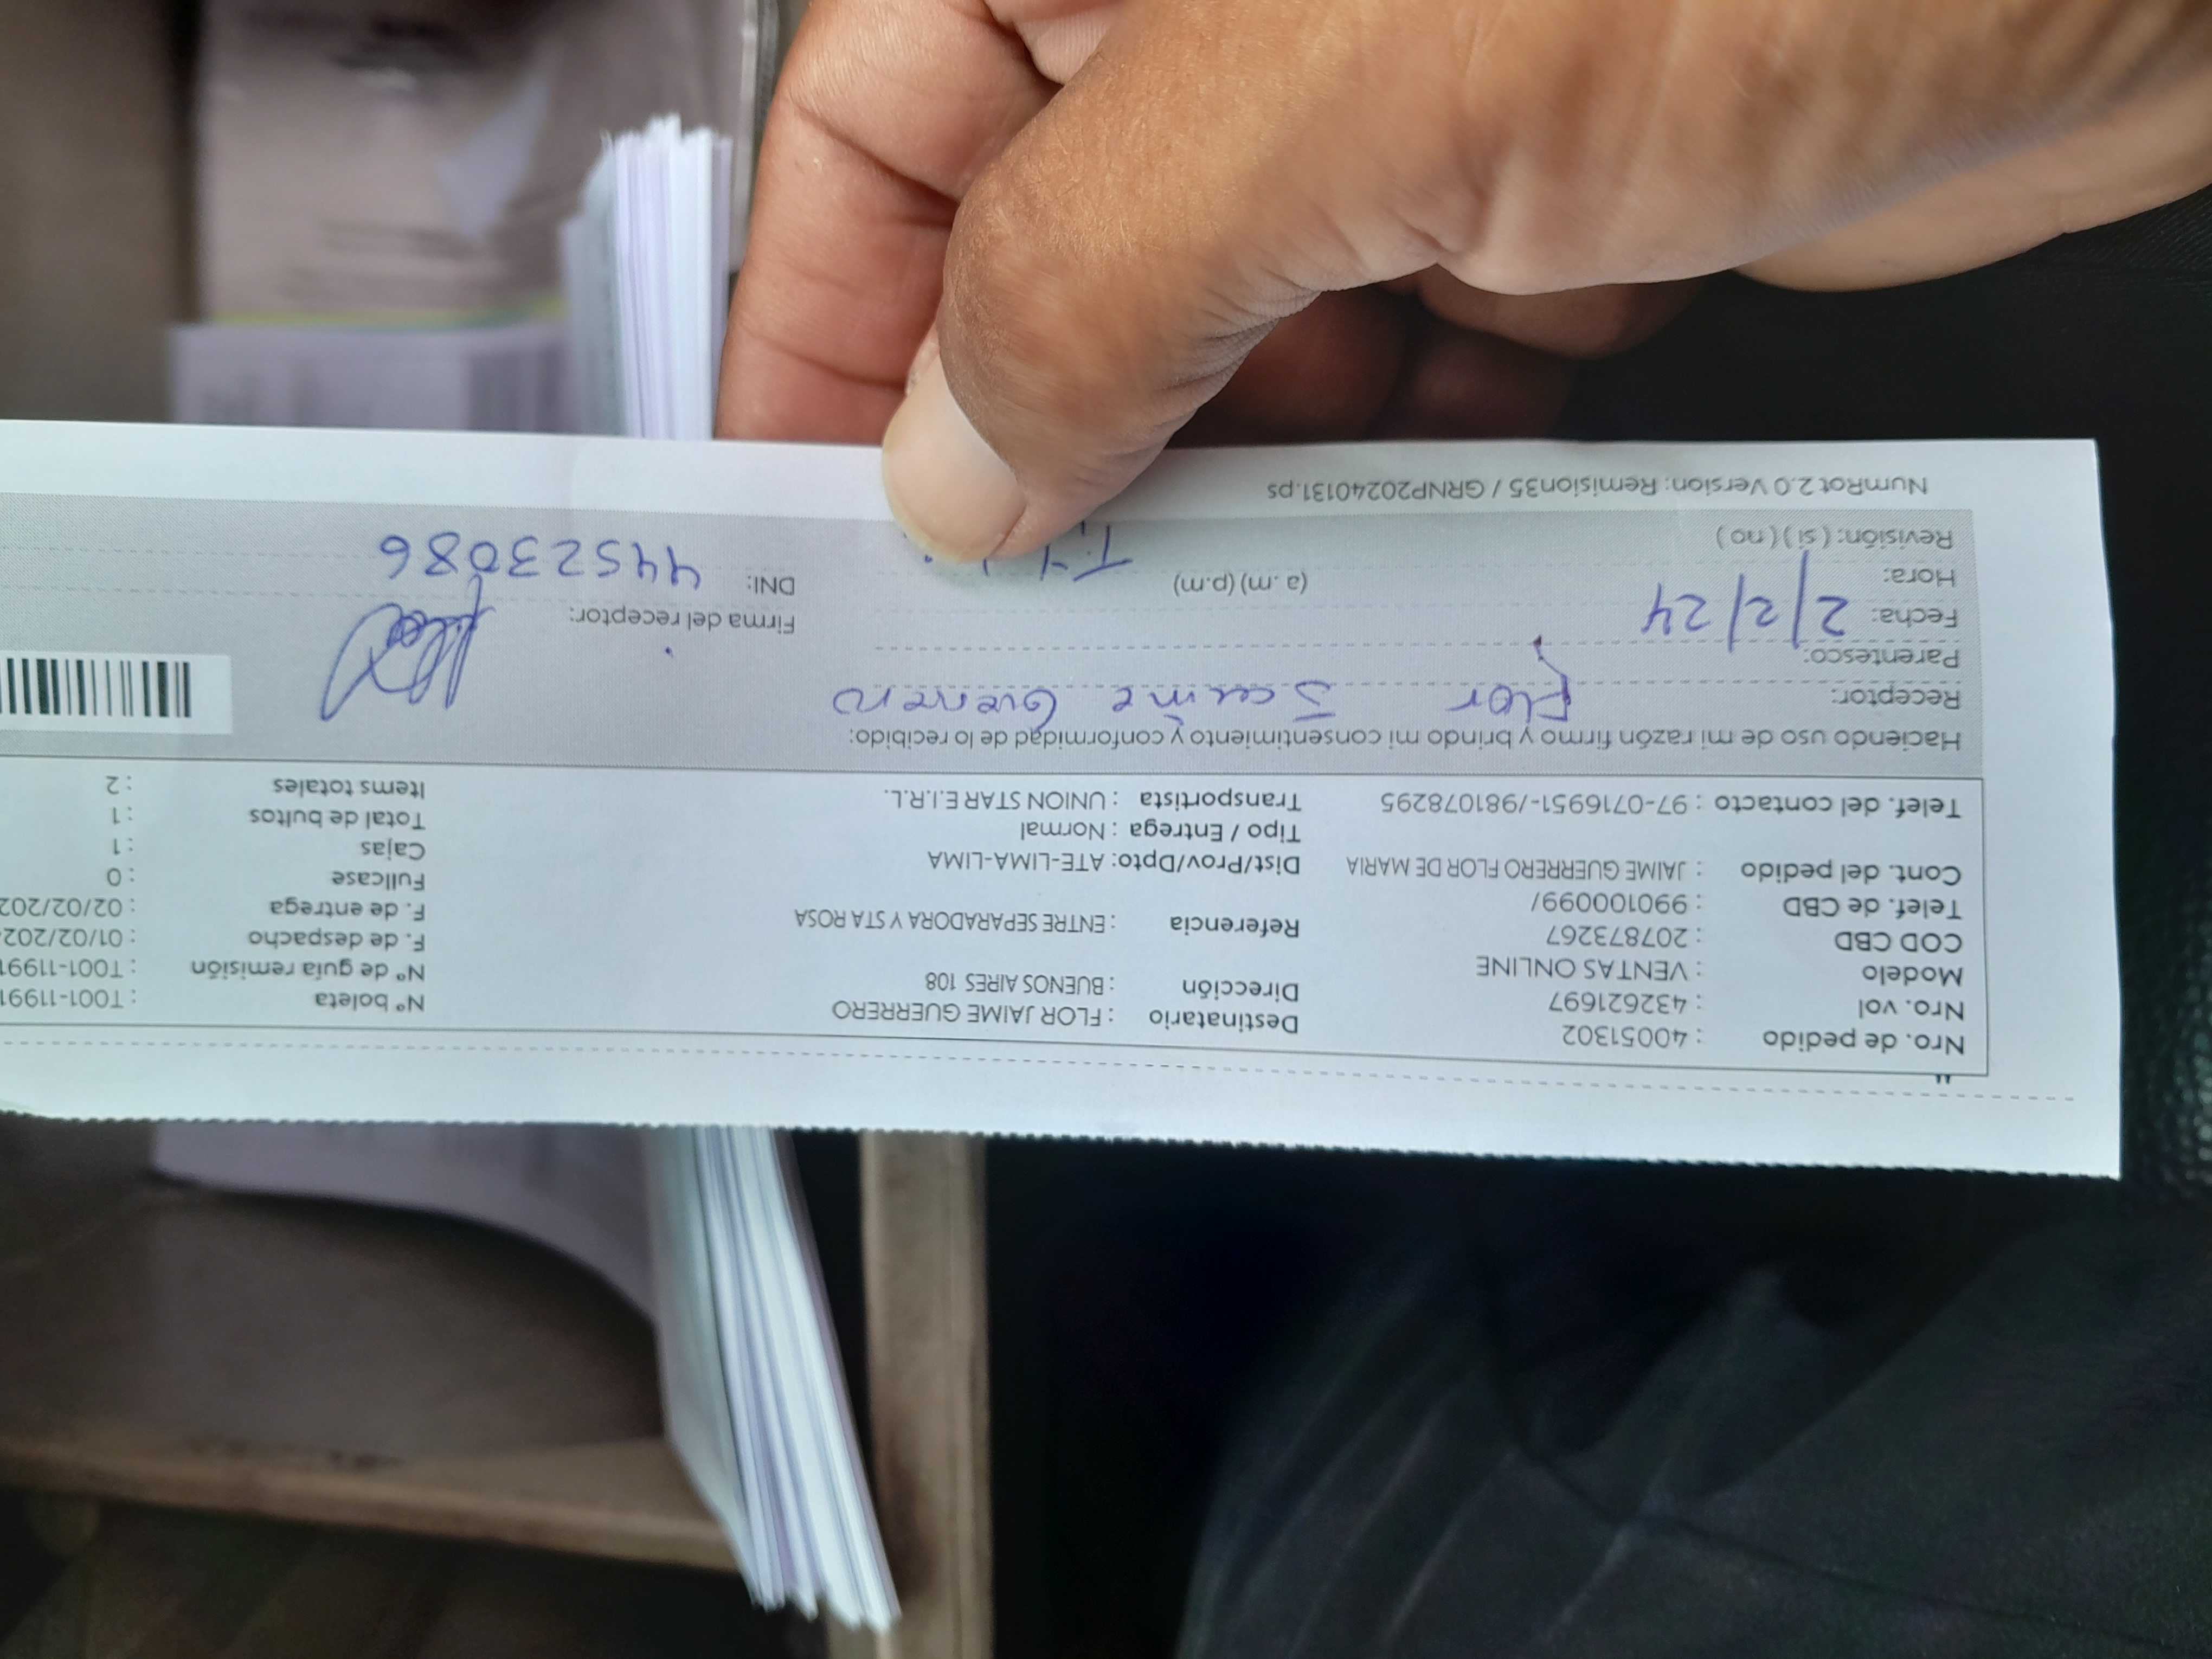 Nro. de pedido : 40051302
Nro. vol : 432621697
Modelo : VENTAS ONLINE
COD CBD : 207873267
Telef. de CBD : 990100099/
Cont. del pedido : JAIME GUERRERO FLOR DE MARIA
Telef. del contacto : 97-0716951-/981078295
Destinatario : FLOR JAIME GUERRERO
Dirección : BUENOS AIRES 108
Referencia : ENTRE SEPARADORA Y STA ROSA
Dist/Prov/Dpto: ATE-LIMA-LIMA
Tipo / Entrega : Normal
Transportista : UNION STAR E.I.R.L.
N° boleta : T001-11991
N° guía remisión : T001-11991
F. de despacho : 01/02/202
F. de entrega : 02/02/202
Fullcase : 0
Cajas : 1
Total de bultos : 1
Items totales : 2
Haciendo uso de mi razón firmo y brindo mi consentimiento y conformidad de lo recibido:
Receptor: Flor Jaime Guerrero
Parentesco:
Fecha: 2/2/24
Hora: (a .m) (p.m)
Revisión: ( sí ) ( no )
Firma del receptor:
DNI: 44523086
NumRot 2.0 Version: Remision35 / GRNP20240131.ps